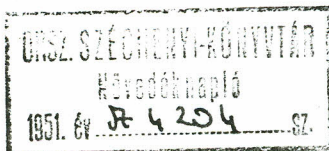 ORSZ. SZÉCHÉNYI-KÖNYVTÁR
Növedéknapló
1951. év A 4204 sz.